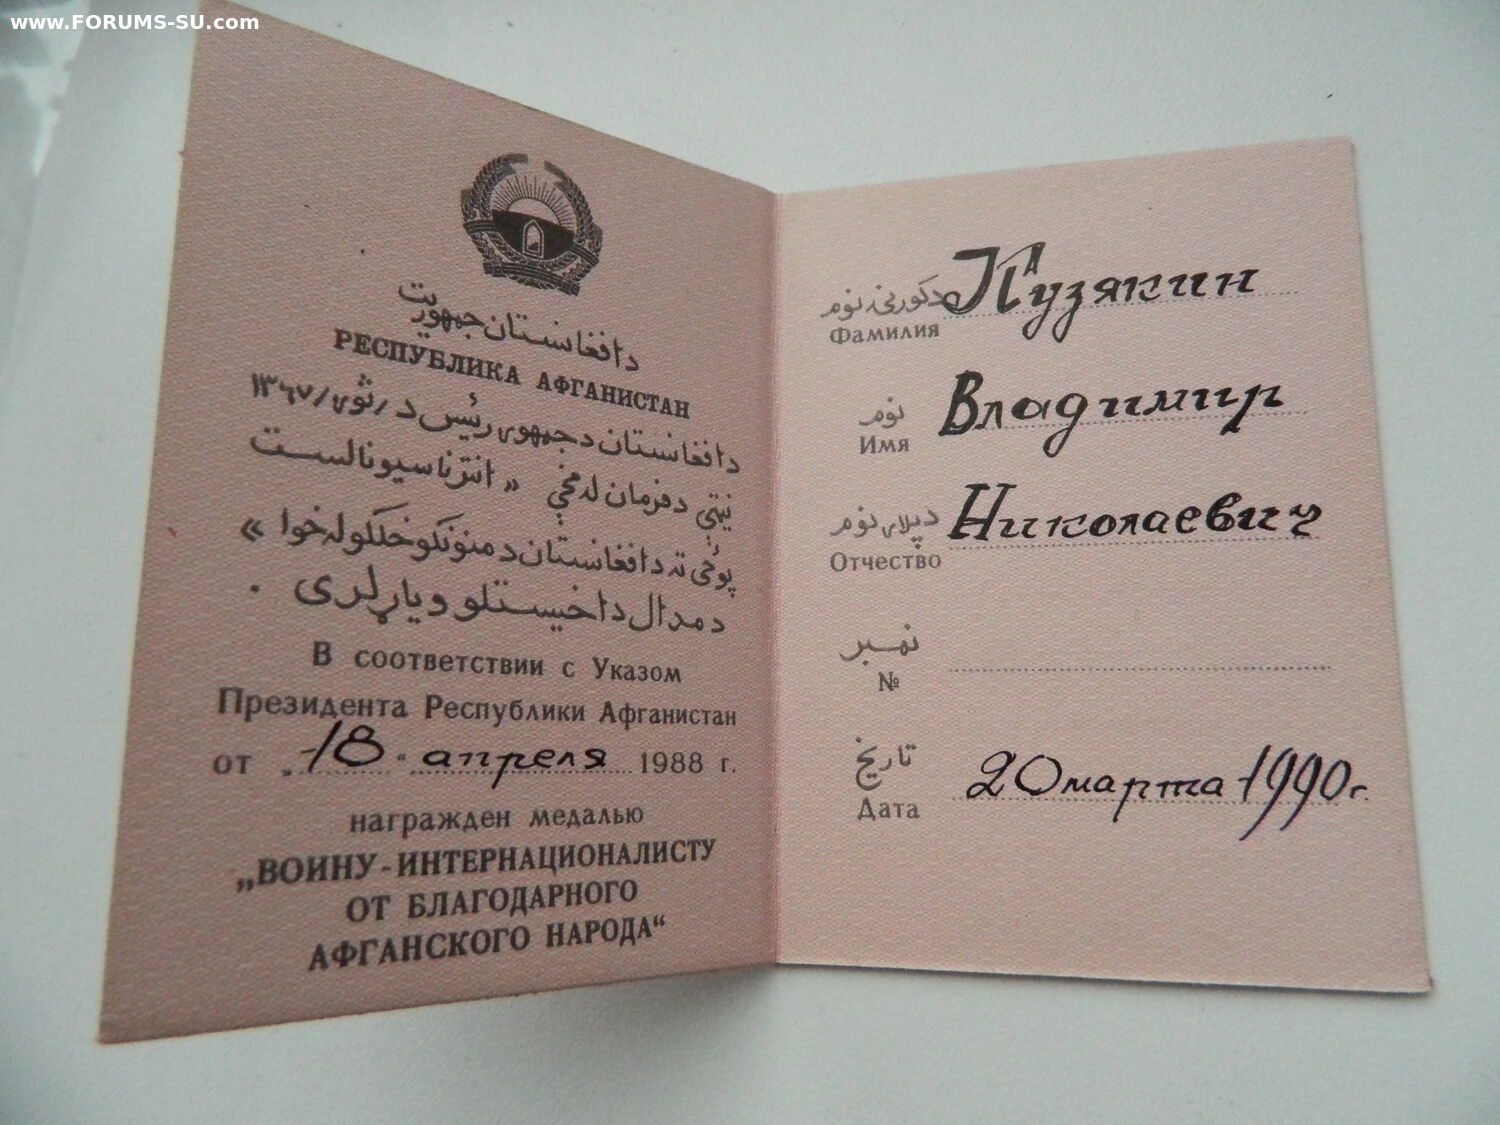 www.FORUMS-SU.com
دافغانستان جمهوریت
РЕСПУБЛИКА АФГАНИСТАН
دافغانستان دجمهوری رئیس د / ثوری / ۱۳۶۷
نیټې دفرمان له مخې « انترناسیونالست
پوځی ته دافغانستان دمنونکو خلکو له خوا »
دمدال داخیستلو ویاړ لری .
В соответствии с Указом
Президента Республики Афганистан
от „18“ апреля 1988 г.
награжден медалью
„ВОИНУ-ИНТЕРНАЦИОНАЛИСТУ
ОТ БЛАГОДАРНОГО
АФГАНСКОГО НАРОДА“
دکورنۍ نوم
Фамилия Кузякин
نوم
Имя Владимир
دپلار نوم
Отчество Николаевич
نمبر
№
تاریخ
Дата 20 марта 1990г.